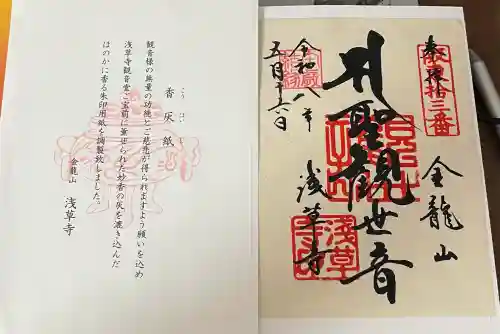 香灰紙
観音様の無量の功徳とご慈悲が得られますよう願いを込め
浅草寺観音堂ご宝前に薫ぜられた妙香の灰を漉き込んだ
ほのかに香る朱印用紙を調製致しました。
金龍山 浅草寺
奉拝
坂東拾三番
金龍山
聖観世音
浅草寺
令和八年
五月
浅草寺